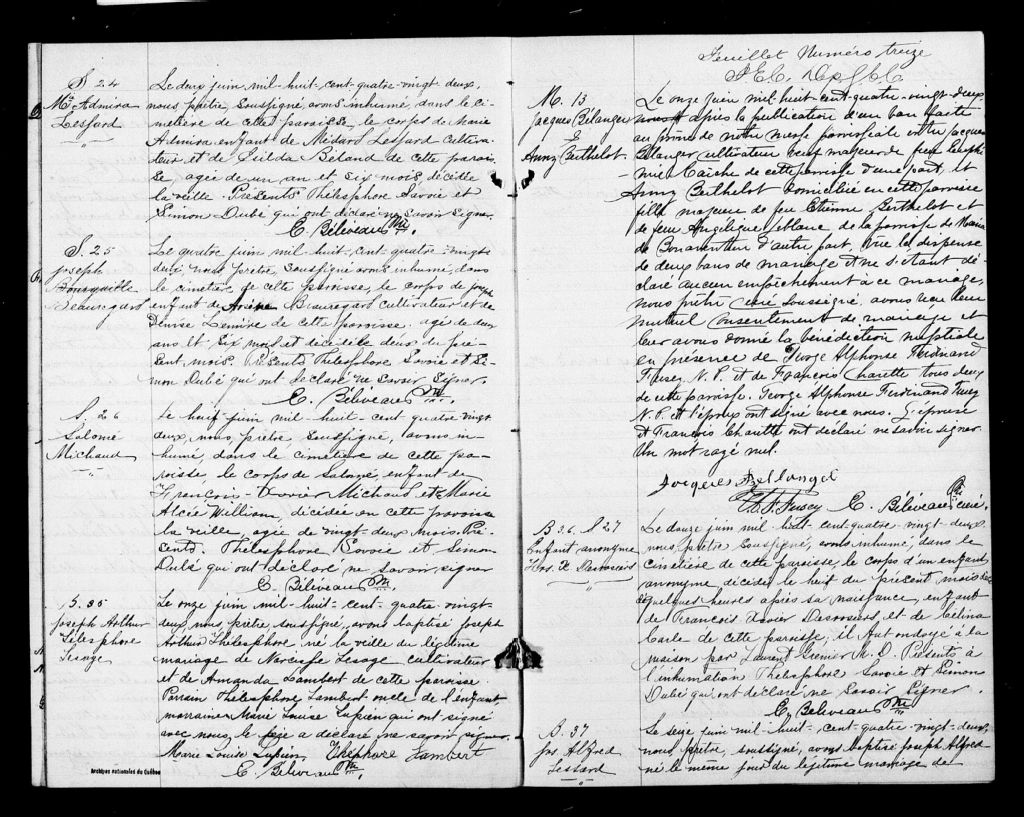 S. 24
M. Admira
Lessard
Le deux juin mil-huit-cent-quatre-vingt-deux,
nous, prêtre soussigné, avons inhumé, dans le ci-
metière de cette paroisse, le corps de Marie
Admira enfant de Médard Lessard cultiva-
teur et de Béland de cette parois-
se agée de un an et six mois décédée
la veille. Présents Thélesphore Savoie et
Simon Dubé qui ont déclaré ne savoir signer.
E. Béliveau Ptre.
S. 25
Joseph
Beauregard
Le quatre juin mil-huit-cent-quatre-vingt
deux, nous, prêtre, soussigné avons inhumé, dans
le cimetière de cette paroisse, le corps de Joseph
enfant de Arsène Beauregard cultivateur et de
Denise Lemire de cette paroisse. agé de deux
ans et six mois et décédé le deux du pré-
sent mois. Présents Thélesphore Savoie et Si-
mon Dubé qui ont déclaré ne savoir signer.
E. Béliveau Ptre.
S. 26
Salomé
Michaud
Le huit juin mil-huit-cent quatre-vingt
deux, nous, prêtre, soussigné, avons in-
humé, dans le cimetière de cette pa-
roisse, le corps de Salomé, enfant de
François-Xavier Michaud et Marie
Alcée William, décédée en cette paroisse
la veille, agée de vingt-deux mois. Pré-
sents. Thélesphore Savoie et Simon
Dubé qui ont déclaré ne savoir signer
E. Béliveau Ptre.
B. 35
Joseph Arthur
Télesphore
Lesage
Le onze juin mil-huit-cent-quatre-vingt-
deux, nous, prêtre, soussigné, avons baptisé Joseph
Arthur Thélesphore, né la veille du légitime
mariage de Narcisse Lesage cultivateur
et de Amanda Lambert de cette paroisse.
Parrain Thélesphore Lambert oncle de l'enfant,
marraine Marie Louise Lupien qui ont signé
avec nous, le père a déclaré ne savoir signer.
Marie Louise Lupien, Théléphore Lambert
E. Béliveau Ptre.
Archives nationales du Québec
Feuillet Numéro treize
M. 13
Jacques Bélanger
&
Anny Berthelot.
Le onze juin mil huit-cent-quatre-vingt-deux
après la publication d'un ban faite
au prône de notre messe paroissiale entre Jacques
Bélanger cultivateur veuf majeur de feu Euphé-
mie de cette paroisse d'une part, et
Anny Berthelot domiciliée en cette paroisse
fille majeure de feu Etienne Berthelot et
de feu Angélique Leblanc de la paroisse de Maria
de Bonaventure d'autre part, vue la dispense
de deux bans de mariage et ne s'étant dé-
claré aucun empêchement à ce mariage,
nous, prêtre curé soussigné, avons reçu leur
mutuel consentement de mariage et
leur avons donné la bénédiction nuptiale
en présence de George Alphonse Ferdinand
Fusey N. P. et de François Charette tous deux
de cette paroisse. George Alphonse Ferdinand Fusey
N. P. et l'époux ont signé avec nous. L'épouse
et François Charette ont déclaré ne savoir signer.
Un mot rayé nul.
Jacques Bellanger
F. Fusey E. Béliveau Ptre curé.
B. 36. S 27
Enfant anonyme
Frs. X Desrosiers
Le douze juin mil huit-cent-quatre-vingt-deux
nous, prêtre soussigné, avons inhumé, dans le
cimetière de cette paroisse, le corps d'un enfant
anonyme décédé le huit du présent mois
quelques heures après sa naissance, enfant
de François Xavier Desrosiers et de Célina
de cette paroisse, il fut ondoyé à la
maison par Laurent Grenier M. D. Présents à
l'inhumation Thélesphore Savoie et Simon
Dubé qui ont déclaré ne savoir signer.
E. Béliveau Ptre
B. 37
Jos. Alfred
Lessard
Le seize juin mil-huit-cent-quatre-vingt-deux,
nous, prêtre, soussigné, avons baptisé Joseph Alfred
né le même jour du légitime mariage de